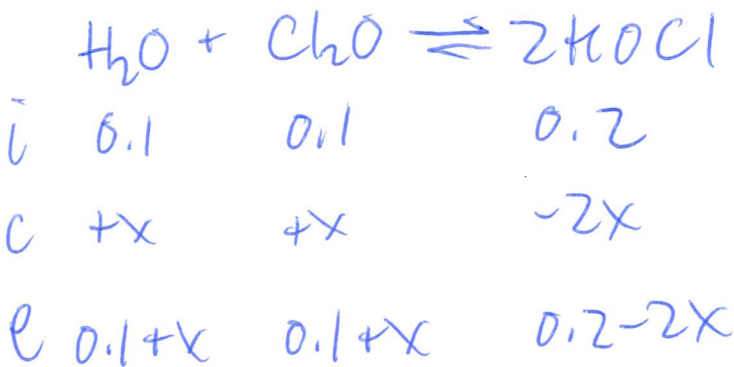 H₂O + Cl₂O ⇌ 2HOCl
i 0.1 0.1 0.2
c +x +x -2x
e 0.1+x 0.1+x 0.2-2x